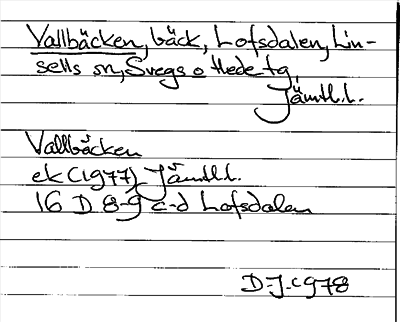 Vallbäcken, bäck, Lofsdalen, Lin-
sells sn, Svegs o Hede tg
Jämtl.l.
Vallbäcken
ek (1977) Jämtl.l.
16 D 8-9 c-d Lofsdalen
D-J. 1978